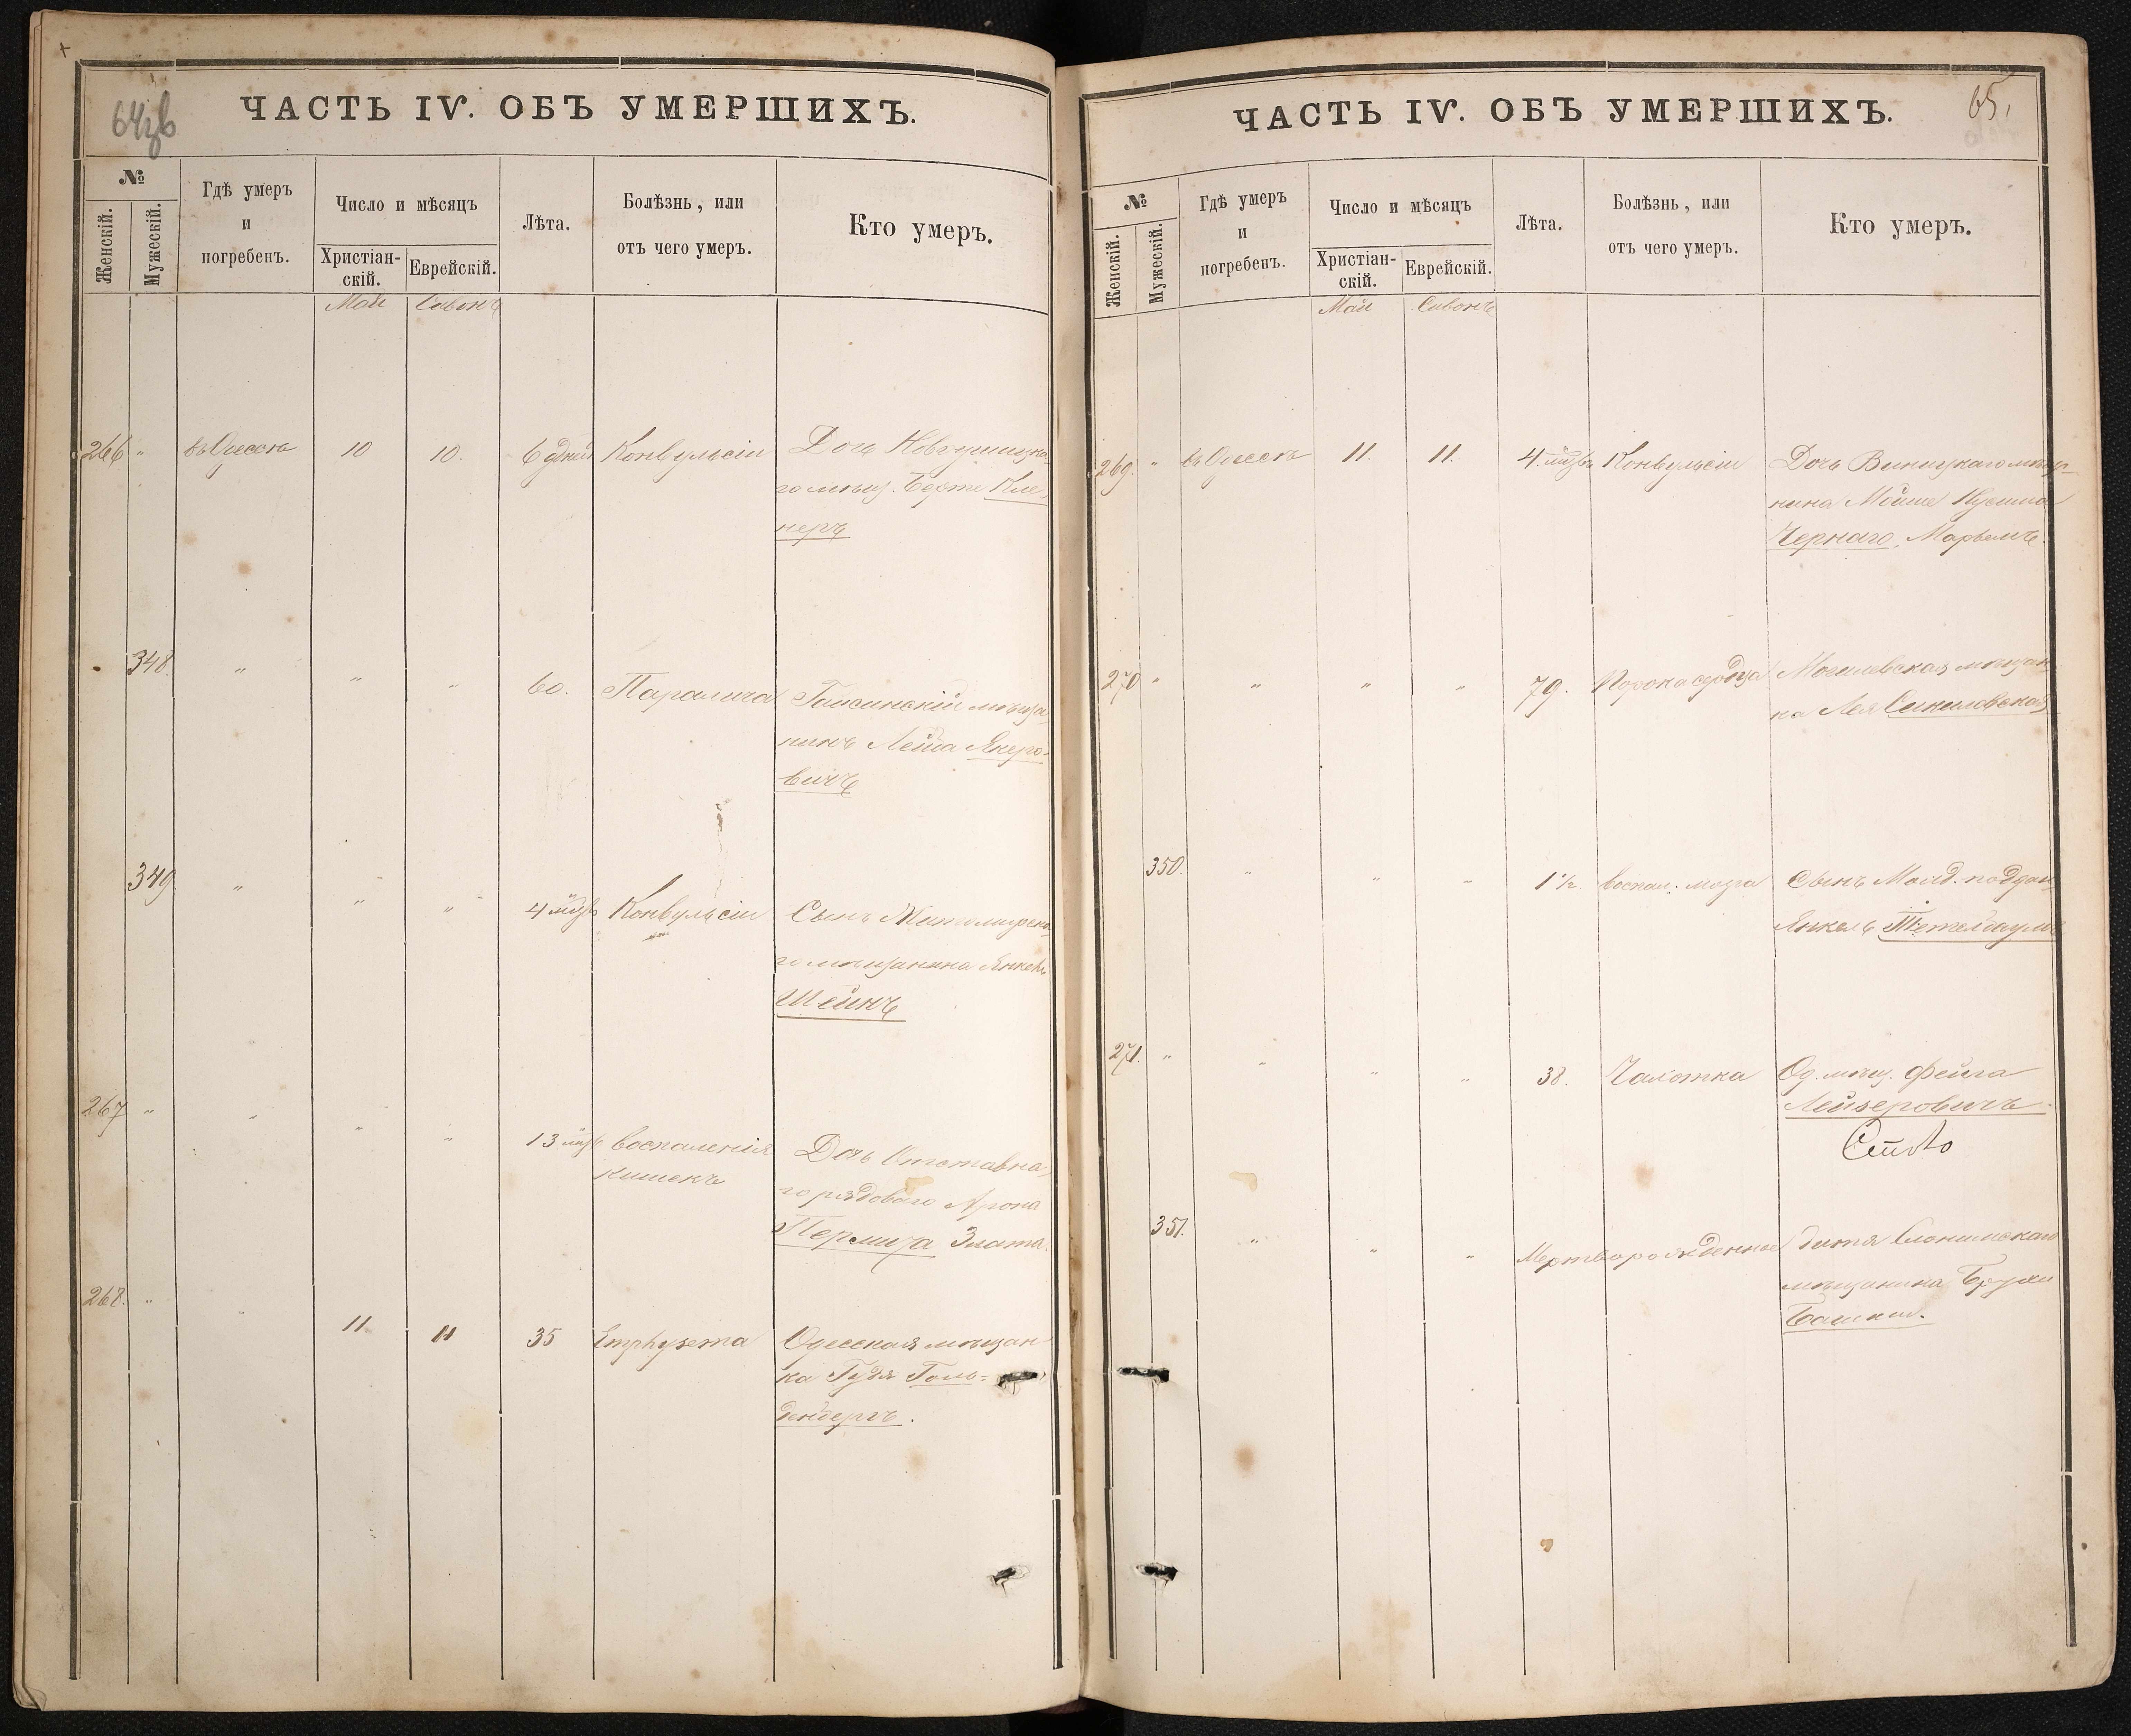 64зв
ЧАСТЬ IV. ОБЪ УМЕРШИХЪ.
№
Женскій.
Мужескій.
Гдѣ умеръ
и
погребенъ.
Число и мѣсяцъ
Христіан-
скій.
Еврейскій.
Лѣта.
Болѣзнь, или
отъ чего умеръ.
Кто умеръ.
Май Сивонъ
266 " въ Одессѣ 10 10. 6 дней Конвульсіи Дочь
го мѣщ. Берте Кле-
неръ
348. " " " 60. Паралича Гайсинскій мѣща-
нинъ Лейба Якеро-
вичъ
349 " " " 4 мѣц Конвульсіи Сынъ Житомирска-
го мѣщанина Янкель
Шейнъ
267 " " " " 13 мѣц воспаленія Дочь Отставна-
кишекъ го рядового Арона
Злата.
268. " " 11. 11 35 Emphysema Одесская мѣщан-
ка Гудя Голь-
дендеръ.
65.
ЧАСТЬ IV. ОБЪ УМЕРШИХЪ.
№
Женскій.
Мужескій.
Гдѣ умеръ
и
погребенъ.
Число и мѣсяцъ
Христіан-
скій.
Еврейскій.
Лѣта.
Болѣзнь, или
отъ чего умеръ.
Кто умеръ.
Май Сивонъ
269. " въ Одессѣ 11. 11. 4. мѣц Конвульсіи Дочь Виницкаго мѣща-
нина Мойше Нусима
Чернаго, Марьемъ.
270 " " " " 79. Порока сердца Могилевская мѣщан-
ка Лея
350. " " " 1½. воспал. мозга Сынъ Молд. поддан.
Янкель Тетелбаумъ
271. " " " " 38. Чахотка Од. мѣщ. Фейга
Лейзеровичъ.
351. " " " Мертворожденное дитя Слонимскаго
мѣщанина Брухи
Башкин.